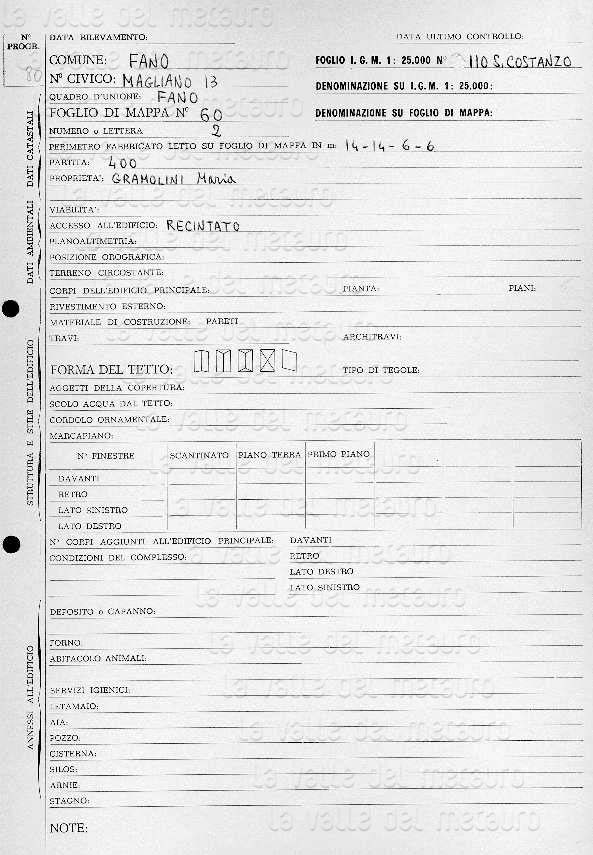 N° PROGR.
80
DATA RILEVAMENTO:
DATA ULTIMO CONTROLLO:
COMUNE: FANO
FOGLIO I. G. M. 1: 25.000 N° 110 S. COSTANZO
N° CIVICO: MAGLIANO 13
DENOMINAZIONE SU I.G.M. 1: 25.000:
QUADRO D'UNIONE: FANO
FOGLIO DI MAPPA N° 60
DENOMINAZIONE SU FOGLIO DI MAPPA:
NUMERO o LETTERA 2
PERIMETRO FABBRICATO LETTO SU FOGLIO DI MAPPA IN m: 14-14-6-6
PARTITA: 400
PROPRIETA': GRAMOLINI Maria
DATI CATASTALI
VIABILITA':
ACCESSO ALL'EDIFICIO: RECINTATO
PLANOALTIMETRIA:
POSIZIONE OROGRAFICA:
TERRENO CIRCOSTANTE:
DATI AMBIENTALI
CORPI DELL'EDIFICIO PRINCIPALE: PIANTA: PIANI:
RIVESTIMENTO ESTERNO:
MATERIALE DI COSTRUZIONE: PARETI
TRAVI: ARCHITRAVI:
FORMA DEL TETTO: TIPO DI TEGOLE:
AGGETTI DELLA COPERTURA:
SCOLO ACQUA DAL TETTO:
CORDOLO ORNAMENTALE:
MARCAPIANO:
N° FINESTRE SCANTINATO PIANO TERRA PRIMO PIANO
DAVANTI
RETRO
LATO SINISTRO
LATO DESTRO
STRUTTURA E STILE DELL'EDIFICIO
N° CORPI AGGIUNTI ALL'EDIFICIO PRINCIPALE: DAVANTI
CONDIZIONI DEL COMPLESSO: RETRO
LATO DESTRO
LATO SINISTRO
DEPOSITO o CAPANNO:
FORNO:
ABITACOLO ANIMALI:
SERVIZI IGIENICI:
LETAMAIO:
AIA:
POZZO:
CISTERNA:
SILOS:
ARNIE:
STAGNO:
ANNESSI ALL'EDIFICIO
NOTE:
la valle del metauro